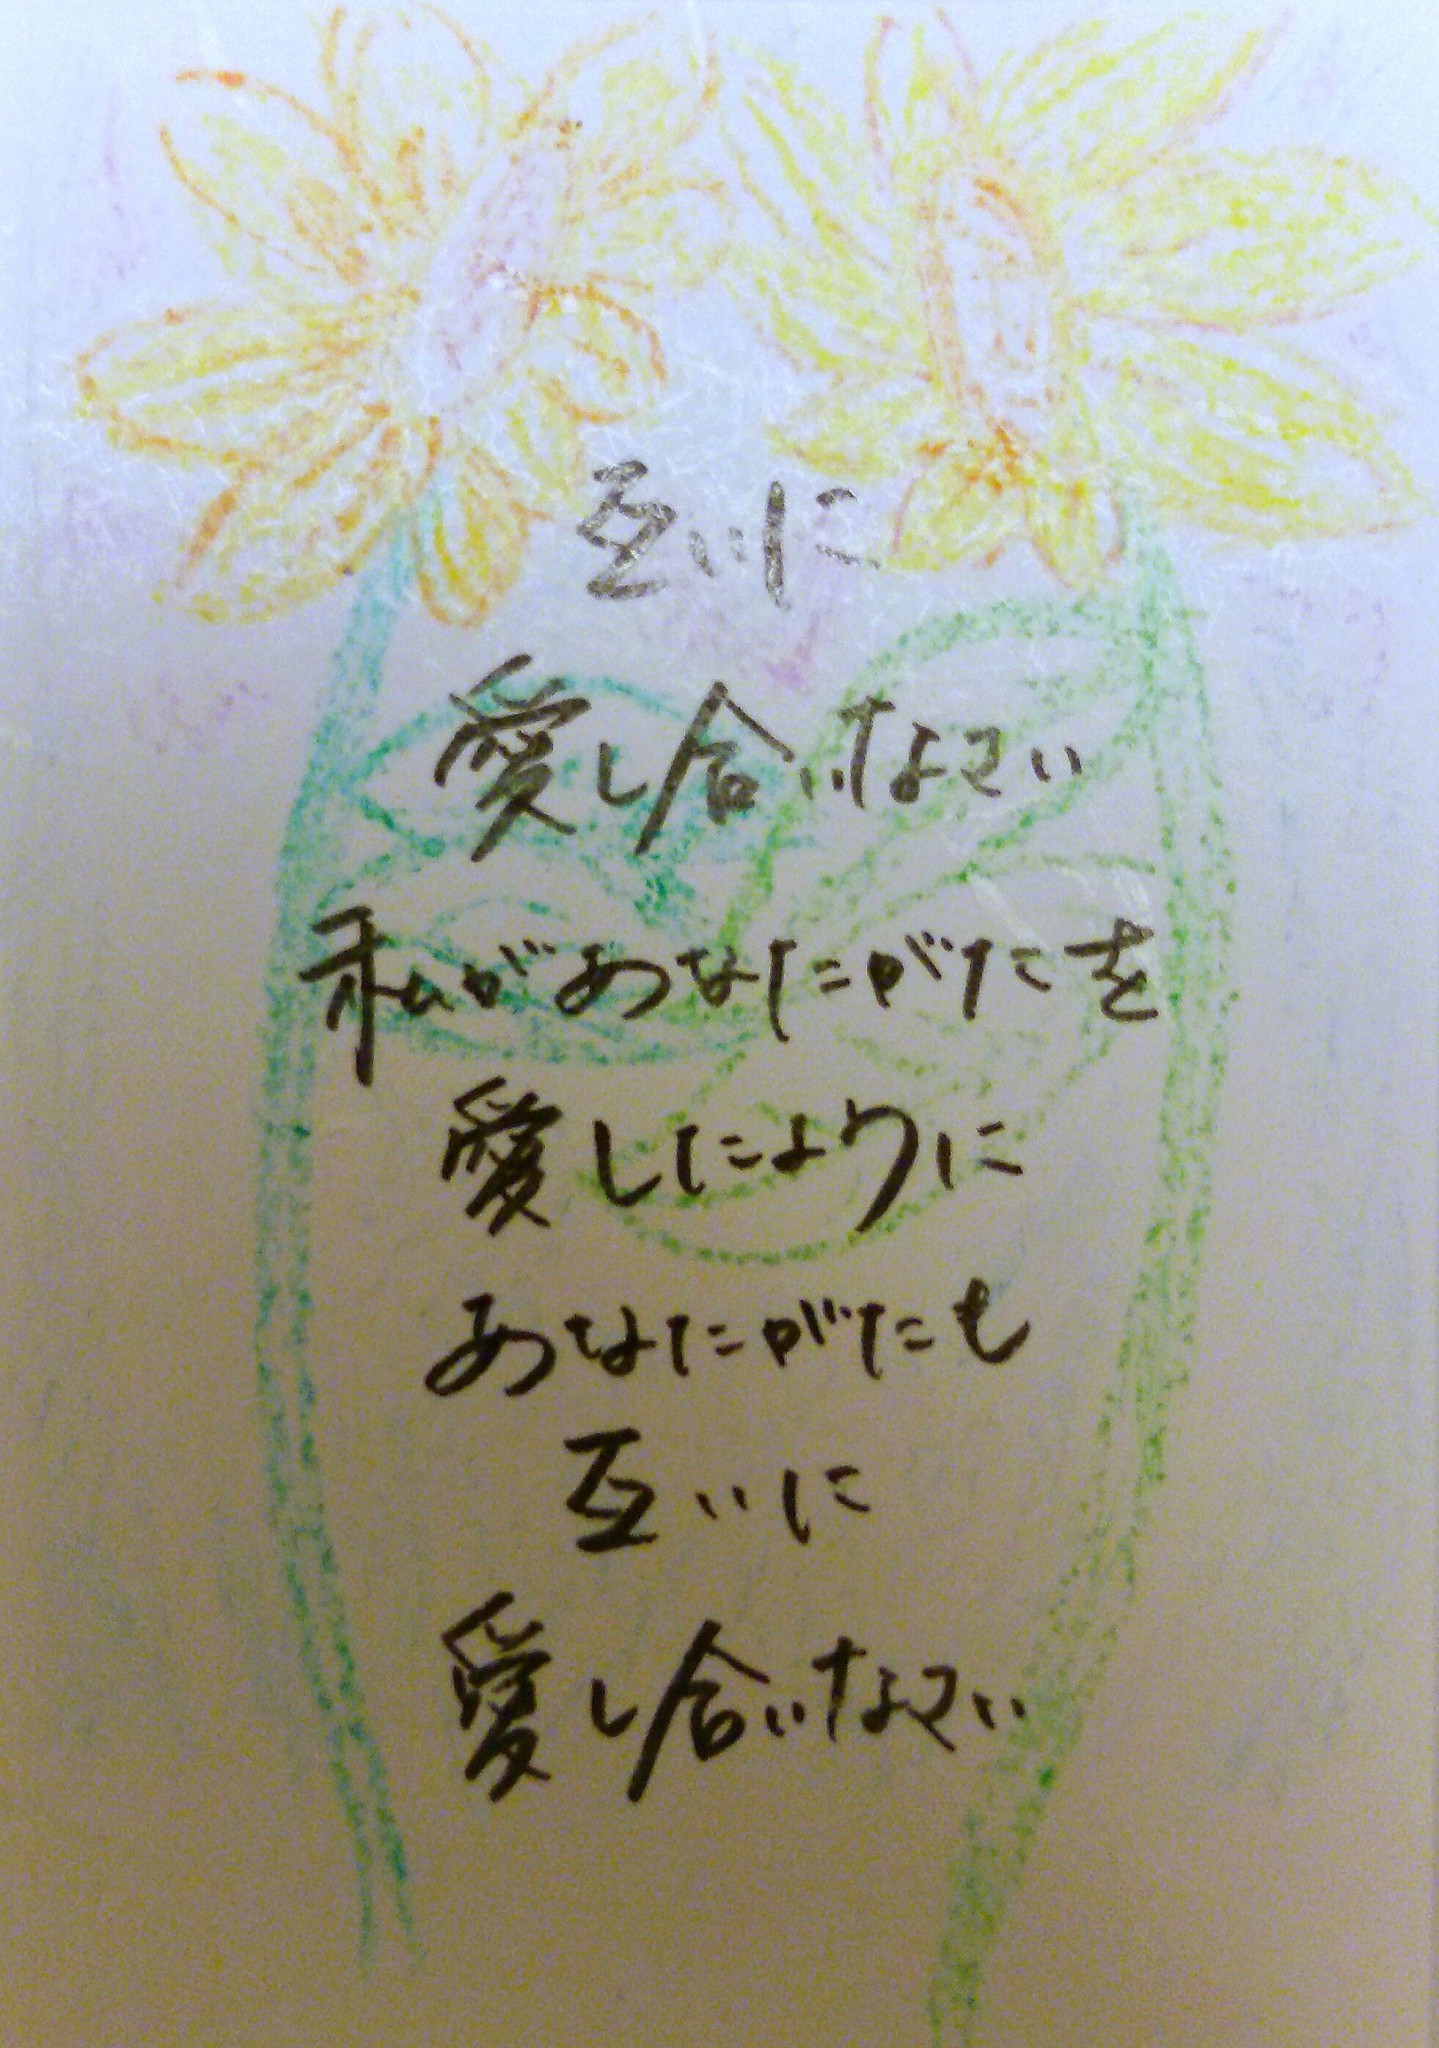 互いに
愛し合いなさい
私があなたがたを
愛したように
あなたがたも
互いに
愛し合いなさい